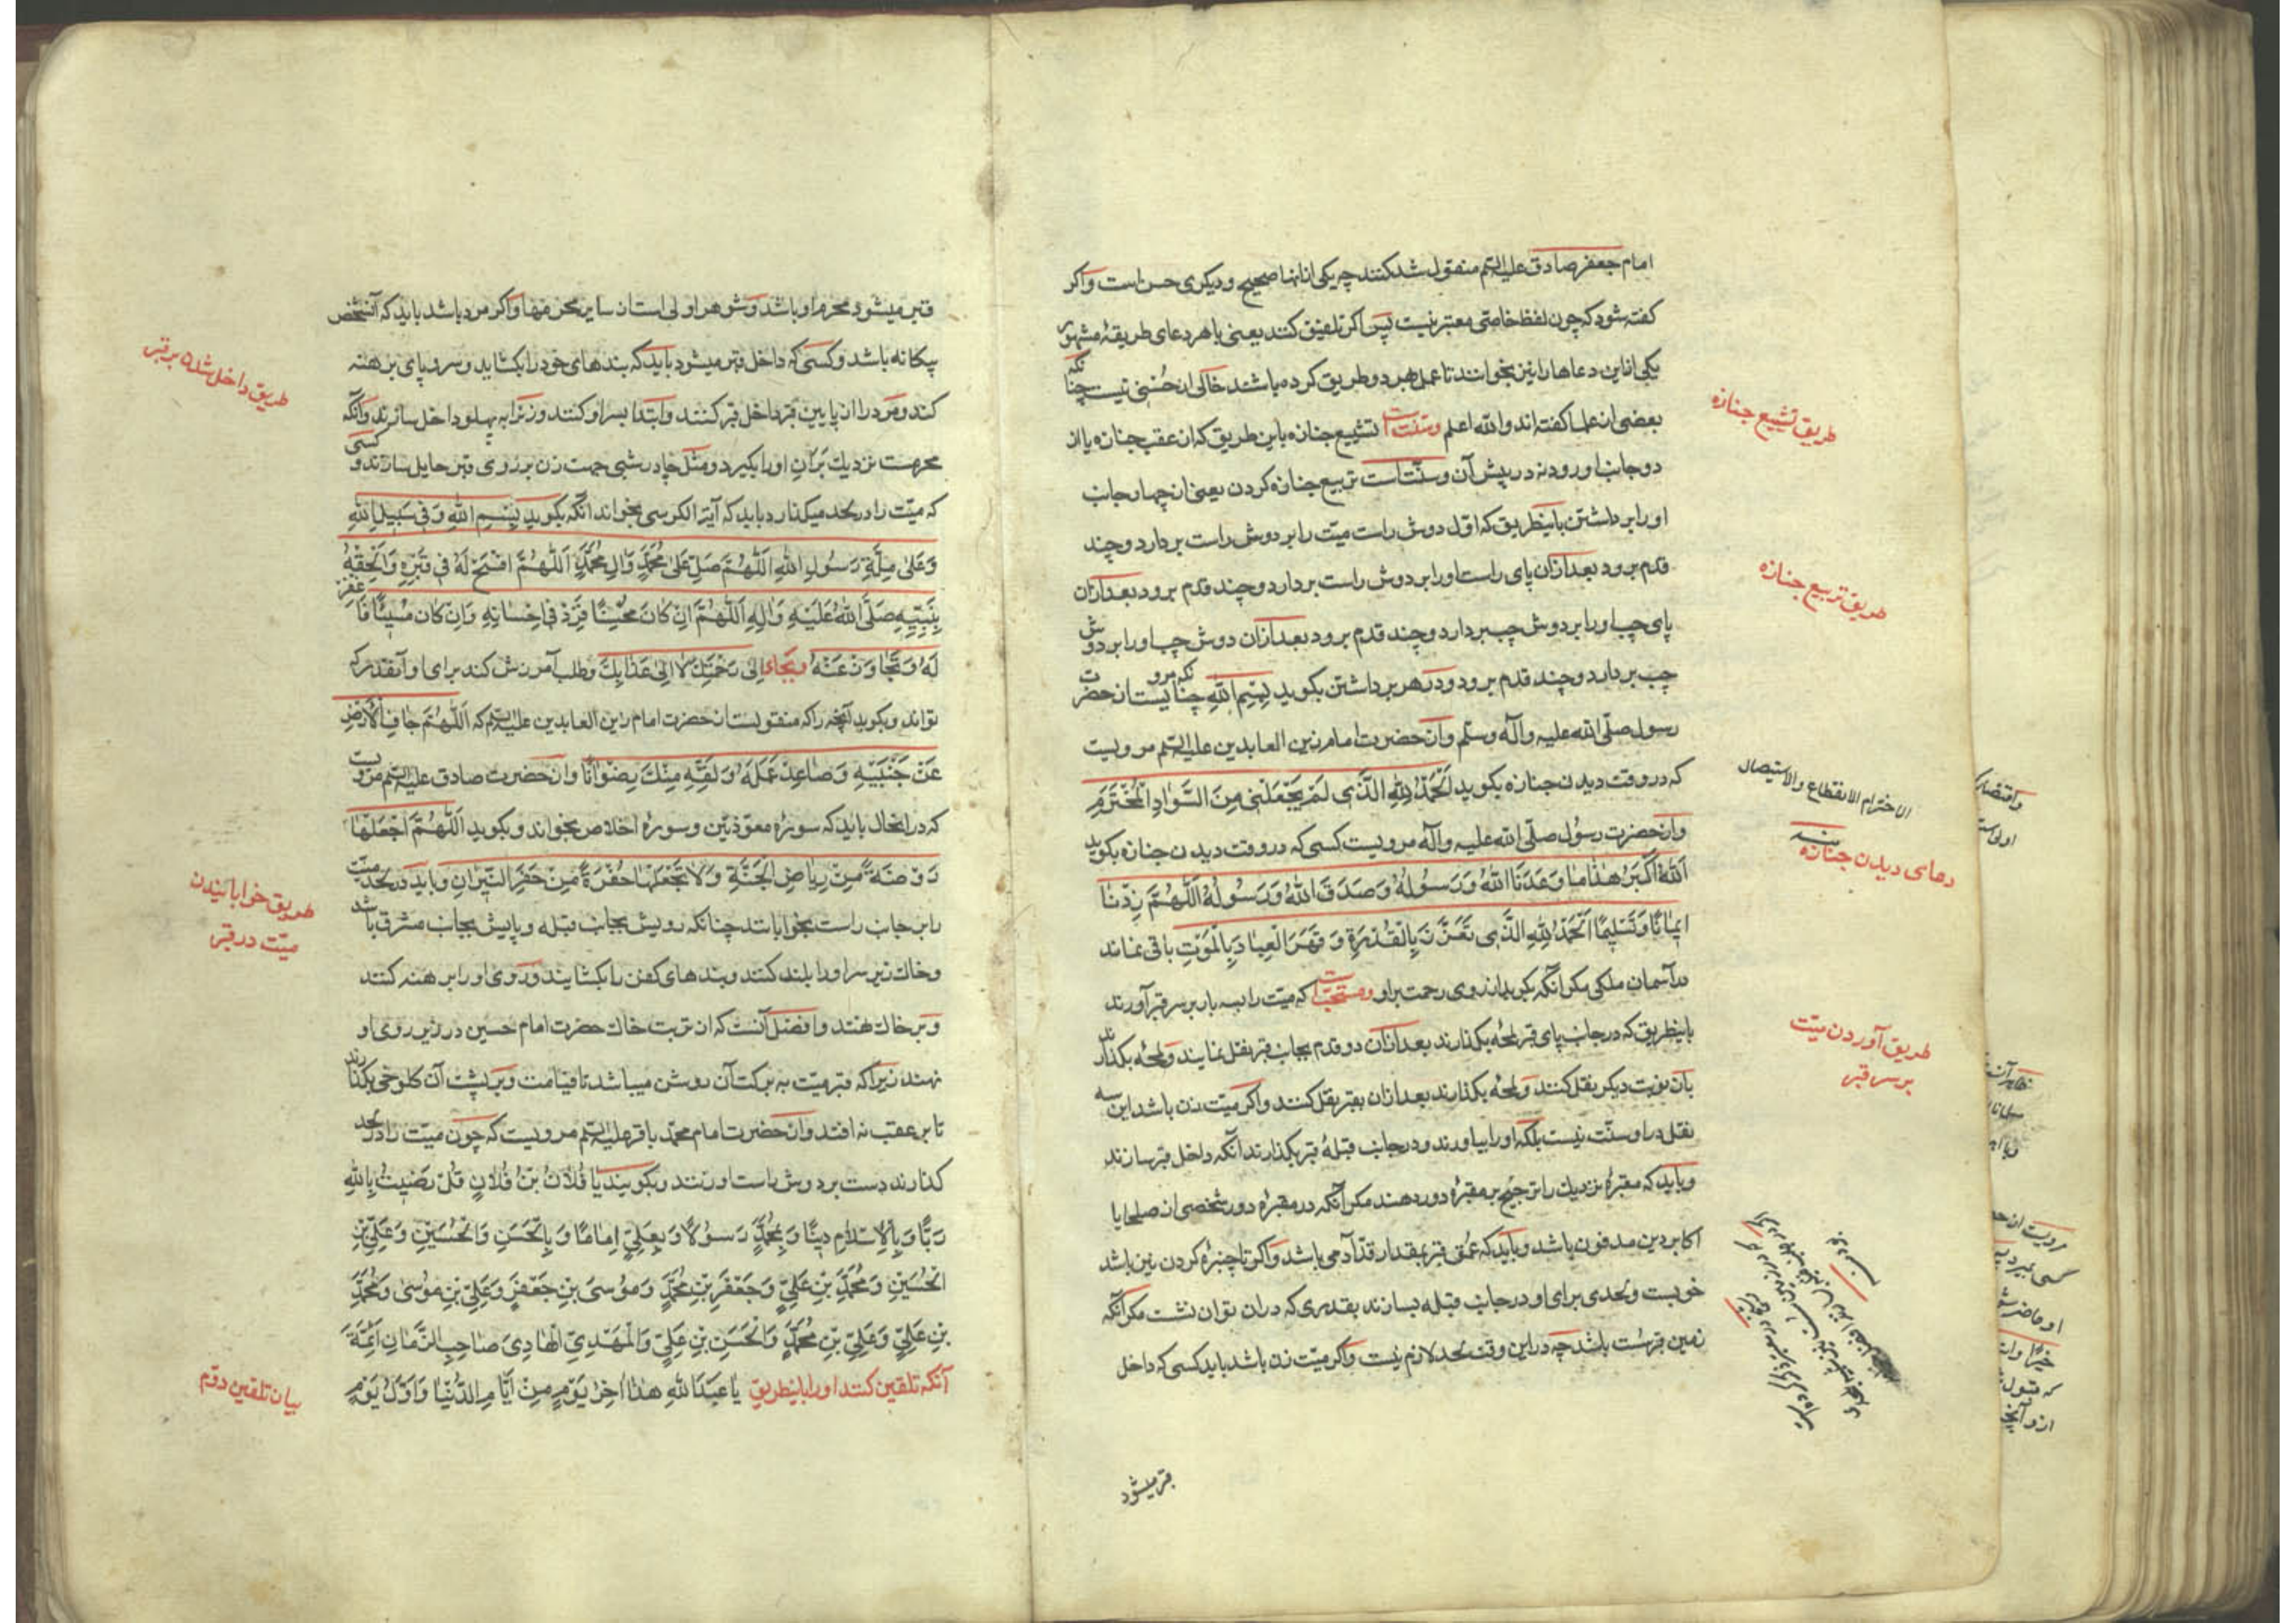 امام جعفر صادق علیه السلم منقول شد کنند چه یکی از انها صحیح و دیکری حسن است و اکر
کفته شود که چون لفظ خاصی معتبر نیست پس اکر تلفیق کنند یعنی با هر دعای طریقهٔ مشهور
یکی از این دعاها را نیز بخوانند تا عمل بهر دو طریق کرده باشند خالی از حسنی نیست چنانکه
بعضی از علما کفته اند والله اعلم و سنت است تشییع جنازه باین طریق که از عقب جنازه یا از
دو جانب او رود نه در پیش آن و سنت است تربیع جنازه کردن یعنی از چهار جانب
او را برداشتن باینطریق که اوّل دوش راست میّت را بر دوش راست بردارد و چند
قدم برود بعد ازان پای راست او را بر دوش راست بردارد و چند قدم برود بعد ازان
پای چپ او را بر دوش چپ بردارد و چند قدم برود بعد ازان دوش چپ او را بر دوش
چپ بردارد و چند قدم برود و در هر برداشتن بکوید بسم الله چنانکه مرویست از حضرت
رسول صلّی الله علیه و آله و سلّم و از حضرت امام زین العابدین علیه السلم مرویست
که در وقت دیدن جنازه بکوید اَلْحَمْدُ لِلّهِ الَّذی لَمْ یَجْعَلْنی مِنَ السَّوادِ الْمُخْتَرَمِ
و از حضرت رسول صلّی الله علیه و آله مرویست کسی که در وقت دیدن جنازه بکوید
اَللّهُ اَکْبَرُ هٰذا ما وَعَدَنَا اللّهُ وَرَسُولُهُ وَصَدَقَ اللّهُ وَرَسُولُهُ اَللّهُمَّ زِدْنا
ایمانًا وَتَسْلیمًا اَلْحَمْدُ لِلّهِ الَّذی تَعَزَّزَ بِالْقُدْرَةِ وَقَهَرَ الْعِبادَ بِالْمَوْتِ باقی نماند
در آسمان ملکی مکر آنکه بکرید از روی رحمت بر او و مستحبّ است که میّت را بسه بار بر سر قبر آورند
باینطریق که در جانب پای قبر لمحهٔ بکذارند بعد ازان دو قدم بجانب قبر نقل نمایند و لمحهٔ بکذارند
بازن نوبت دیکر نقل کنند و لمحهٔ بکذارند بعد ازان بقبر نقل کنند و اکر میّت زن باشد این سه
نقل در او سنّت نیست بلکه او را بیاورند و در جانب قبلهٔ قبر بکذارند آنکه داخل قبر سازند
و باید که مقبرهٔ نزدیک را ترجیح بر مقبرهٔ دور دهند مکر آنکه در مقبرهٔ دور شخصی از صلحا یا
اکابر دین مدفون باشد و باید که عمق قبر بمقدار قدّ آدمی باشد و اکر تا چنبرهٔ کردن نیز باشد
خوبست و لحدی برای او در جانب قبله بسازند بقدری که در ان توان نشست مکر آنکه
زمین قبر سست باشد چه در این وقت لحد لازم نیست و اکر میّت زن باشد باید کسی که داخل
قبر میشود
طریق تشییع جنازه
طریق تربیع جنازه
الاخترام الانقطاع والاستیصال
منه
دعای دیدن جنازه
طریق آوردن میّت
بر سر قبر
قبر میشود محرم او باشد و شوهر اولی است از سایر محرمها و اکر مرد باشد باید که آنشخص
بیکانه باشد و کسی که داخل قبر میشود باید که بندهای خود را بکشاید و سر و پای برهنه
کند و مرد را از پایین قبر داخل قبر کنند و ابتدا بسر او کنند و زنرا به پهلو داخل سازند و آنکه
محرمست نزدیک بَرانِ او را بکیرد و مثل چادر شبی جهت زن بر روی قبر حایل سازند و کسی
که میّت را در لحد میکذارد باید که آیة الکرسی بخواند آنکه بکوید بِسْمِ اللّهِ وَفی سَبیلِ اللّهِ
وَعَلی مِلَّةِ رَسُولِ اللّهِ اَللّهُمَّ صَلِّ عَلی مُحَمَّدٍ وَآلِ مُحَمَّدٍ اَللّهُمَّ افْسَحْ لَهُ فی قَبْرِهِ وَاَلْحِقْهُ
بِنَبِیِّهِ صَلَّی اللّهُ عَلَیْهِ وَآلِهِ اَللّهُمَّ اِنْ کانَ مُحْسِنًا فَزِدْ فی اِحْسانِهِ وَاِنْ کانَ مُسیئًا فَاغْفِرْ
لَهُ وَتَجاوَزْ عَنْهُ وبجای اِلی رَحْمَتِکَ لا اِلی عَذابِکَ و طلب آمرزش کند برای او آنقدر که
تواند و بکوید آنچه را که منقولست از حضرت امام زین العابدین علیه السلم که اَللّهُمَّ جافِ الْاَرْضَ
عَنْ جَنْبَیْهِ وَصاعِدْ عَمَلَهُ وَلَقِّهِ مِنْکَ رِضْوانًا و از حضرت صادق علیه السلم مرویست
که در انحال باید که سورهٔ معوّذتین و سورهٔ اخلاص بخواند و بکوید اَللّهُمَّ اجْعَلْها
رَوْضَةً مِنْ رِیاضِ الْجَنَّةِ وَلا تَجْعَلْها حُفْرَةً مِنْ حُفَرِ النّیرانِ و باید در لحد میّت
را بر جانب راست بخوابانند چنانکه رویش بجانب قبله و پایش بجانب مشرق باشد
و خاک زیر سر او را بلند کنند و بندهای کفن را بکشایند و روی او را برهنه کنند
و بر خاک نهند و افضل آنست که از تربت خاک حضرت امام حسین در زیر روی او
نهند زیرا که قبر میّت به برکت آن روشن میباشد تا قیامت و بر پشت آن کلوخی بکذارند
تا بر عقب نه افتد و از حضرت امام محمّد باقر علیه السلم مرویست که چون میّت را در لحد
کذارند دست بر دوش راست او زنند و بکویند یا فُلانُ بْنَ فُلانٍ قُلْ رَضیتُ بِاللّهِ
رَبًّا وَبِالْاِسْلامِ دینًا وَبِمُحَمَّدٍ رَسُولًا وَبِعَلِیٍّ اِمامًا وَبِالْحَسَنِ وَالْحُسَیْنِ وَعَلِیِّ بْنِ
الْحُسَیْنِ وَمُحَمَّدِ بْنِ عَلِیٍّ وَجَعْفَرِ بْنِ مُحَمَّدٍ وَمُوسَی بْنِ جَعْفَرٍ وَعَلِیِّ بْنِ مُوسی وَمُحَمَّدِ
بْنِ عَلِیٍّ وَعَلِیِّ بْنِ مُحَمَّدٍ وَالْحَسَنِ بْنِ عَلِیٍّ وَالْمَهْدِیِّ الْهادِی صاحِبِ الزَّمانِ اَئِمَّةً
آنکه تلقین کنند او را باینطریق یا عَبْدَ اللّهِ هٰذا اٰخِرُ یَوْمٍ مِنْ اَیّامِ الدُّنْیا وَاَوَّلُ یَوْمٍ
طریق داخل شدن بر قبر
طریق خوابانیدن
میّت در قبر
بیان تلقین دوّم